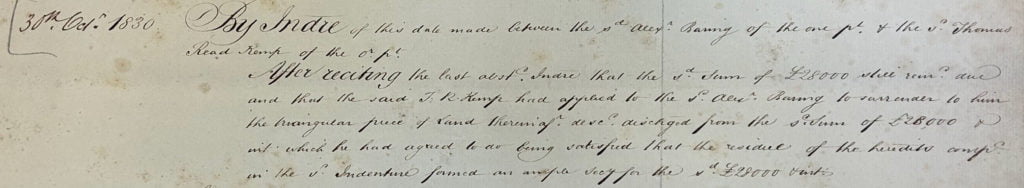 30th. Octr. 1830 By Indre of this date made between the sd. Alexr. Baring of the one pt. & the sd. Thomas
Read Kemp of the or. pt.
After reciting the last abstd. Indre that the sd. Sum of £28000 still remd. due
and that the said T. R. Kemp had applied to the sd. Alexr. Baring to surrender to him
the triangular piece of Land thereinafr. descd. dischged from the sd. Sum of £28,000 &
int. which he had agreed to do being satisfied that the residue of the heredits compd.
in the sd. Indenture formed an ample Secy for the sd. £28000 & int.